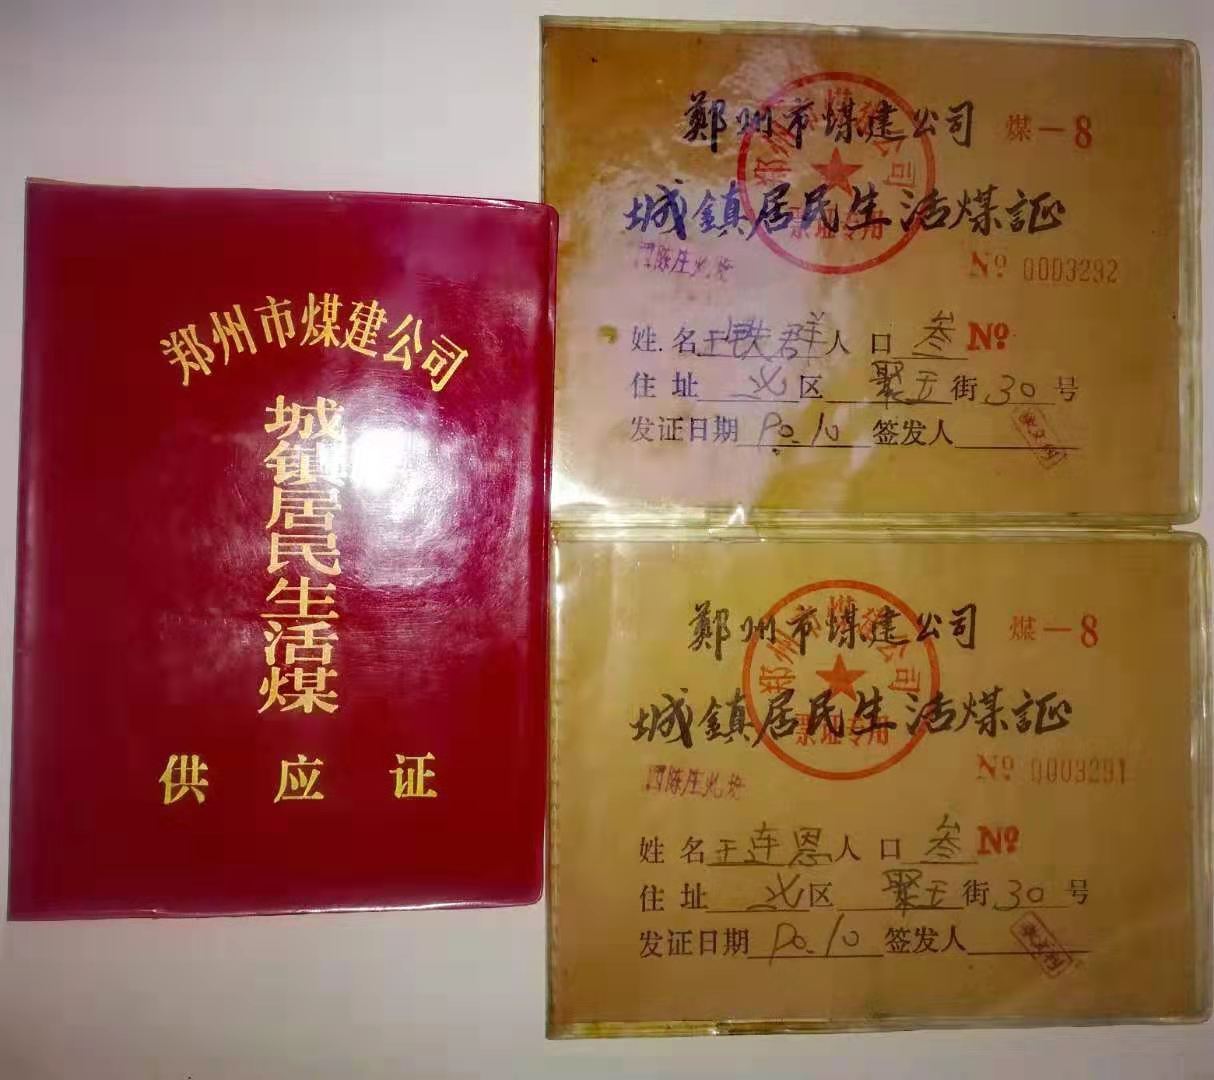 郑州市煤建公司
城镇居民生活煤
供应证
郑州市煤建公司 煤—8
城鎮居民生活煤証
票证专用
№ 0003292
姓名 王铁君 人口 叁 №
住址 火区 聚王街 30号
发证日期 90.10 签发人
郑州市煤建公司 煤—8
城鎮居民生活煤証
票证专用
№ 0003291
姓名 王连恩 人口 叁 №
住址 火区 聚王街 30号
发证日期 90.10 签发人